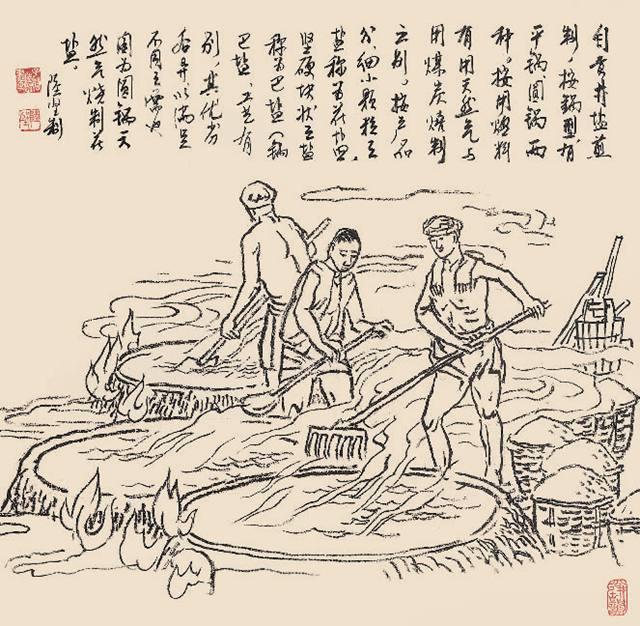 自贡井盐煎
制，按锅型有
平锅圆锅两
种。按用燃料
有用天然气与
用煤炭烧制
之别。按产品
分细小颗粒之
盐称为花盐。
坚硬块状之盐
称为巴盐（锅
巴盐 工艺有
别，其优劣
各异以满足
不同之需
图为圆锅天
然气烧制花
盐。